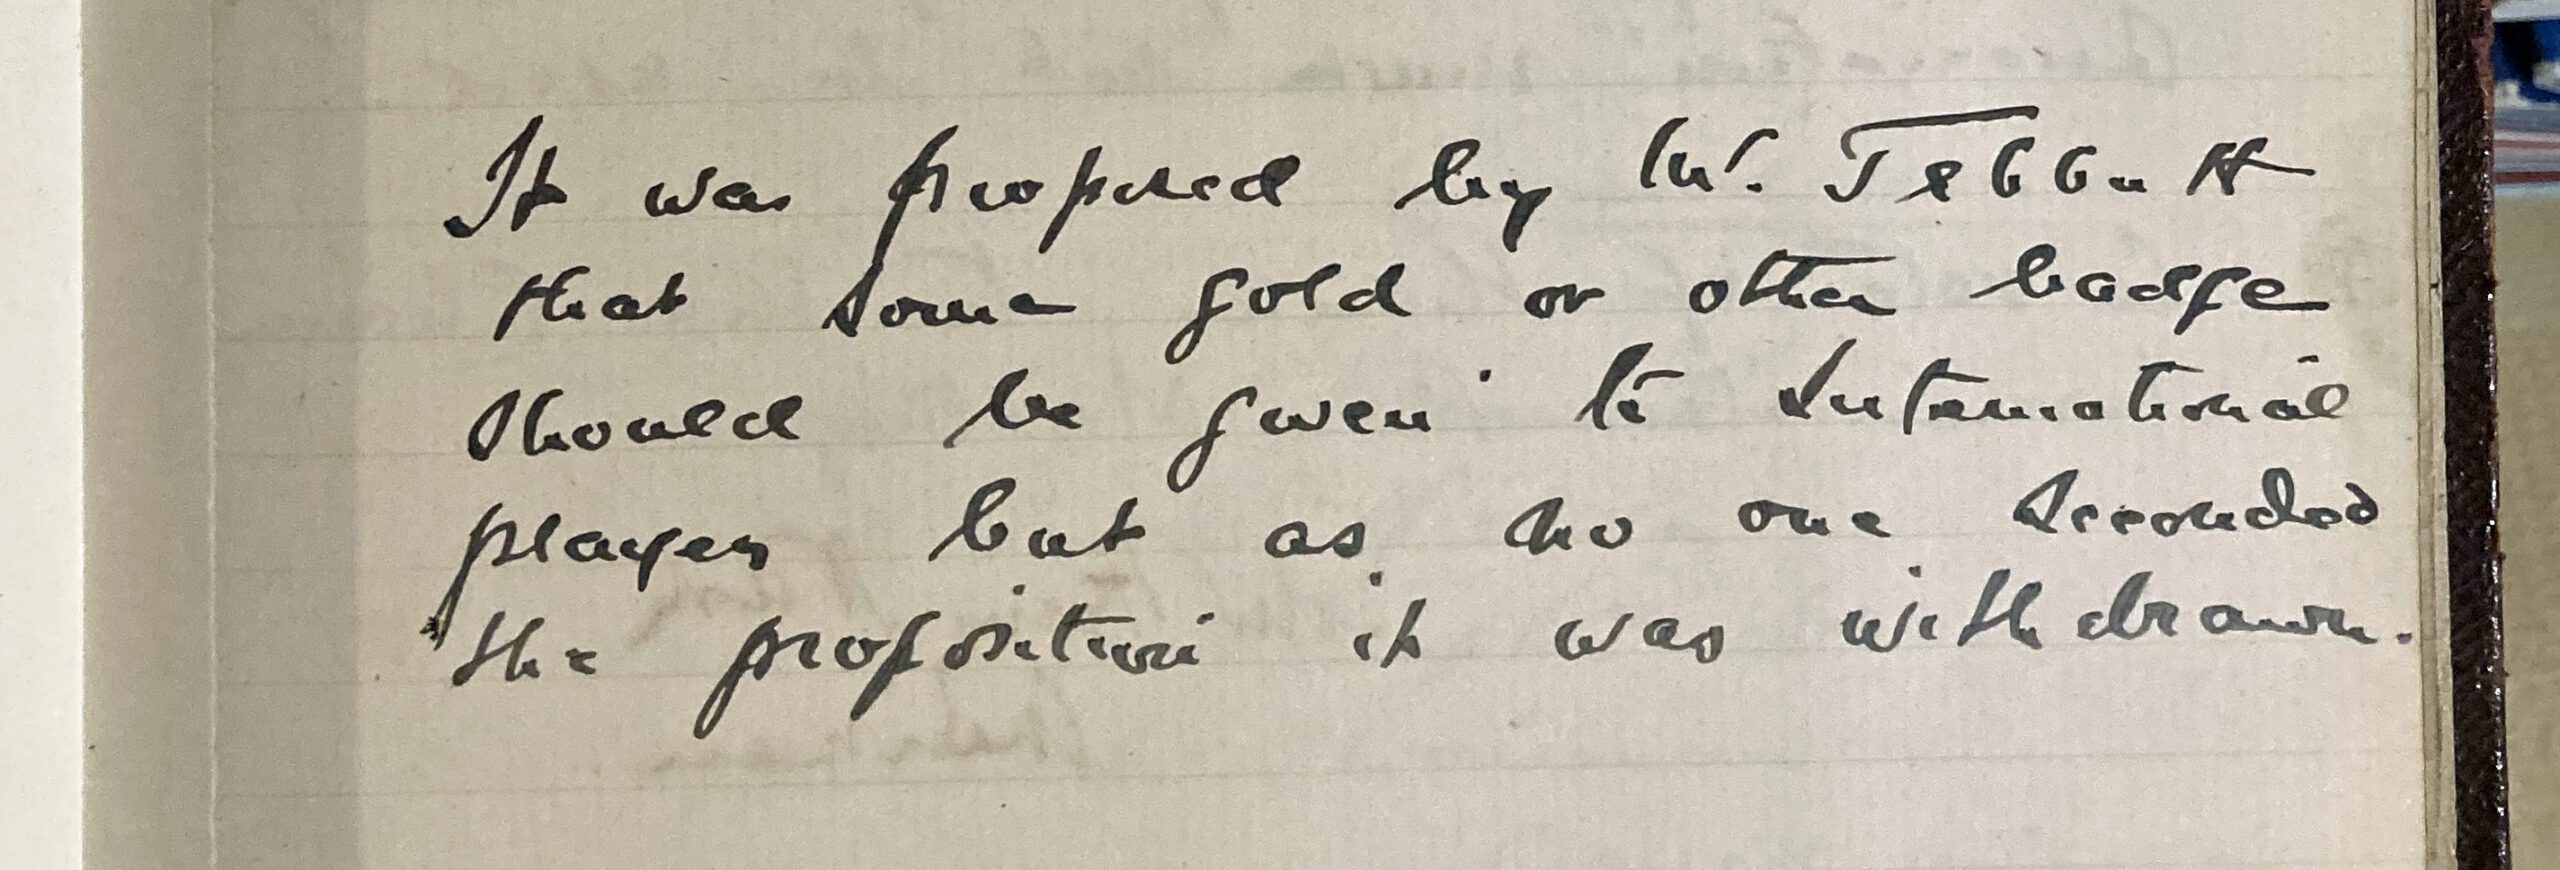 It was proposed by Mr. Tebbutt
that some gold or other badge
should be given to International
players but as no one seconded
the proposition it was withdrawn.